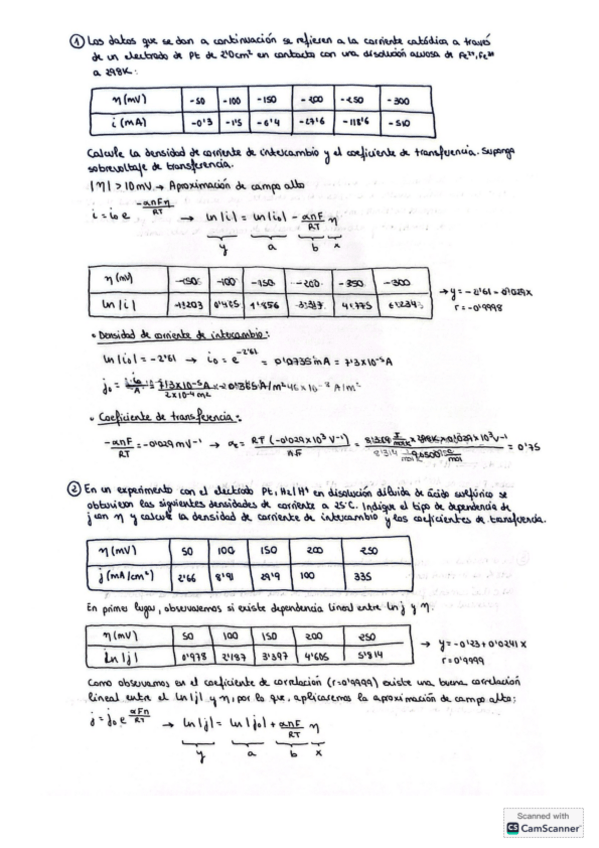 ① Los datos que se dan a continuación se refieren a la corriente catódica a través
de un electrodo de Pt de 2'0cm² en contacto con una disolución acuosa de Fe³⁺, Fe²⁺
a 298K:
η(mV) -50 -100 -150 -200 -250 -300
i(mA) -0'3 -1'5 -6'4 -27'6 -118'6 -510
Calcule la densidad de corriente de intercambio y el coeficiente de transferencia. Suponga
sobrevoltaje de transferencia.
|η| > 10 mV → Aproximación de campo alto
i = i₀ e^(-αnFη/RT) → ln|i| = ln|i₀| - αnF/RT η
y a b x
η(mV) -100 -150 -200 -350 -300
ln|i| 1'856 → y = -2'61 - 0'029x
r = -0'9998
• Densidad de corriente de intercambio:
ln|i₀| = -2'61 → i₀ = e^(-2'61) = 0'0735 mA = 7'3×10⁻⁵ A
j₀ =
• Coeficiente de transferencia:
-αnF/RT = -0'029 mV⁻¹ → = RT(-0'029×10³ V⁻¹)/nF = = 0'75
② En un experimento con el electrodo Pt, H₂|H⁺ en disolución diluida de ácido sulfúrico se
obtuvieron las siguientes densidades de corriente a 25°C. Indique el tipo de dependencia de
j con η y calcule la densidad de corriente de intercambio y los coeficientes de transferencia.
η(mV) 50 100 150 200 250
j(mA/cm²) 2'66 8'91 29'9 100 335
En primer lugar, observaremos si existe dependencia lineal entre ln j y η:
η(mV) 50 100 150 200 250 → y = -0'23 + 0'0241x
ln|j| 0'978 2'187 3'397 4'605 5'814 r = 0'9999
Como observamos en el coeficiente de correlación (r=0'9999) existe una buena correlación
lineal entre el ln|j| y η, por lo que, aplicaremos la aproximación de campo alto:
j = j₀ e^(αFη/RT) → ln|j| = ln|j₀| + αnF/RT η
y a b x
Scanned with
CS CamScanner